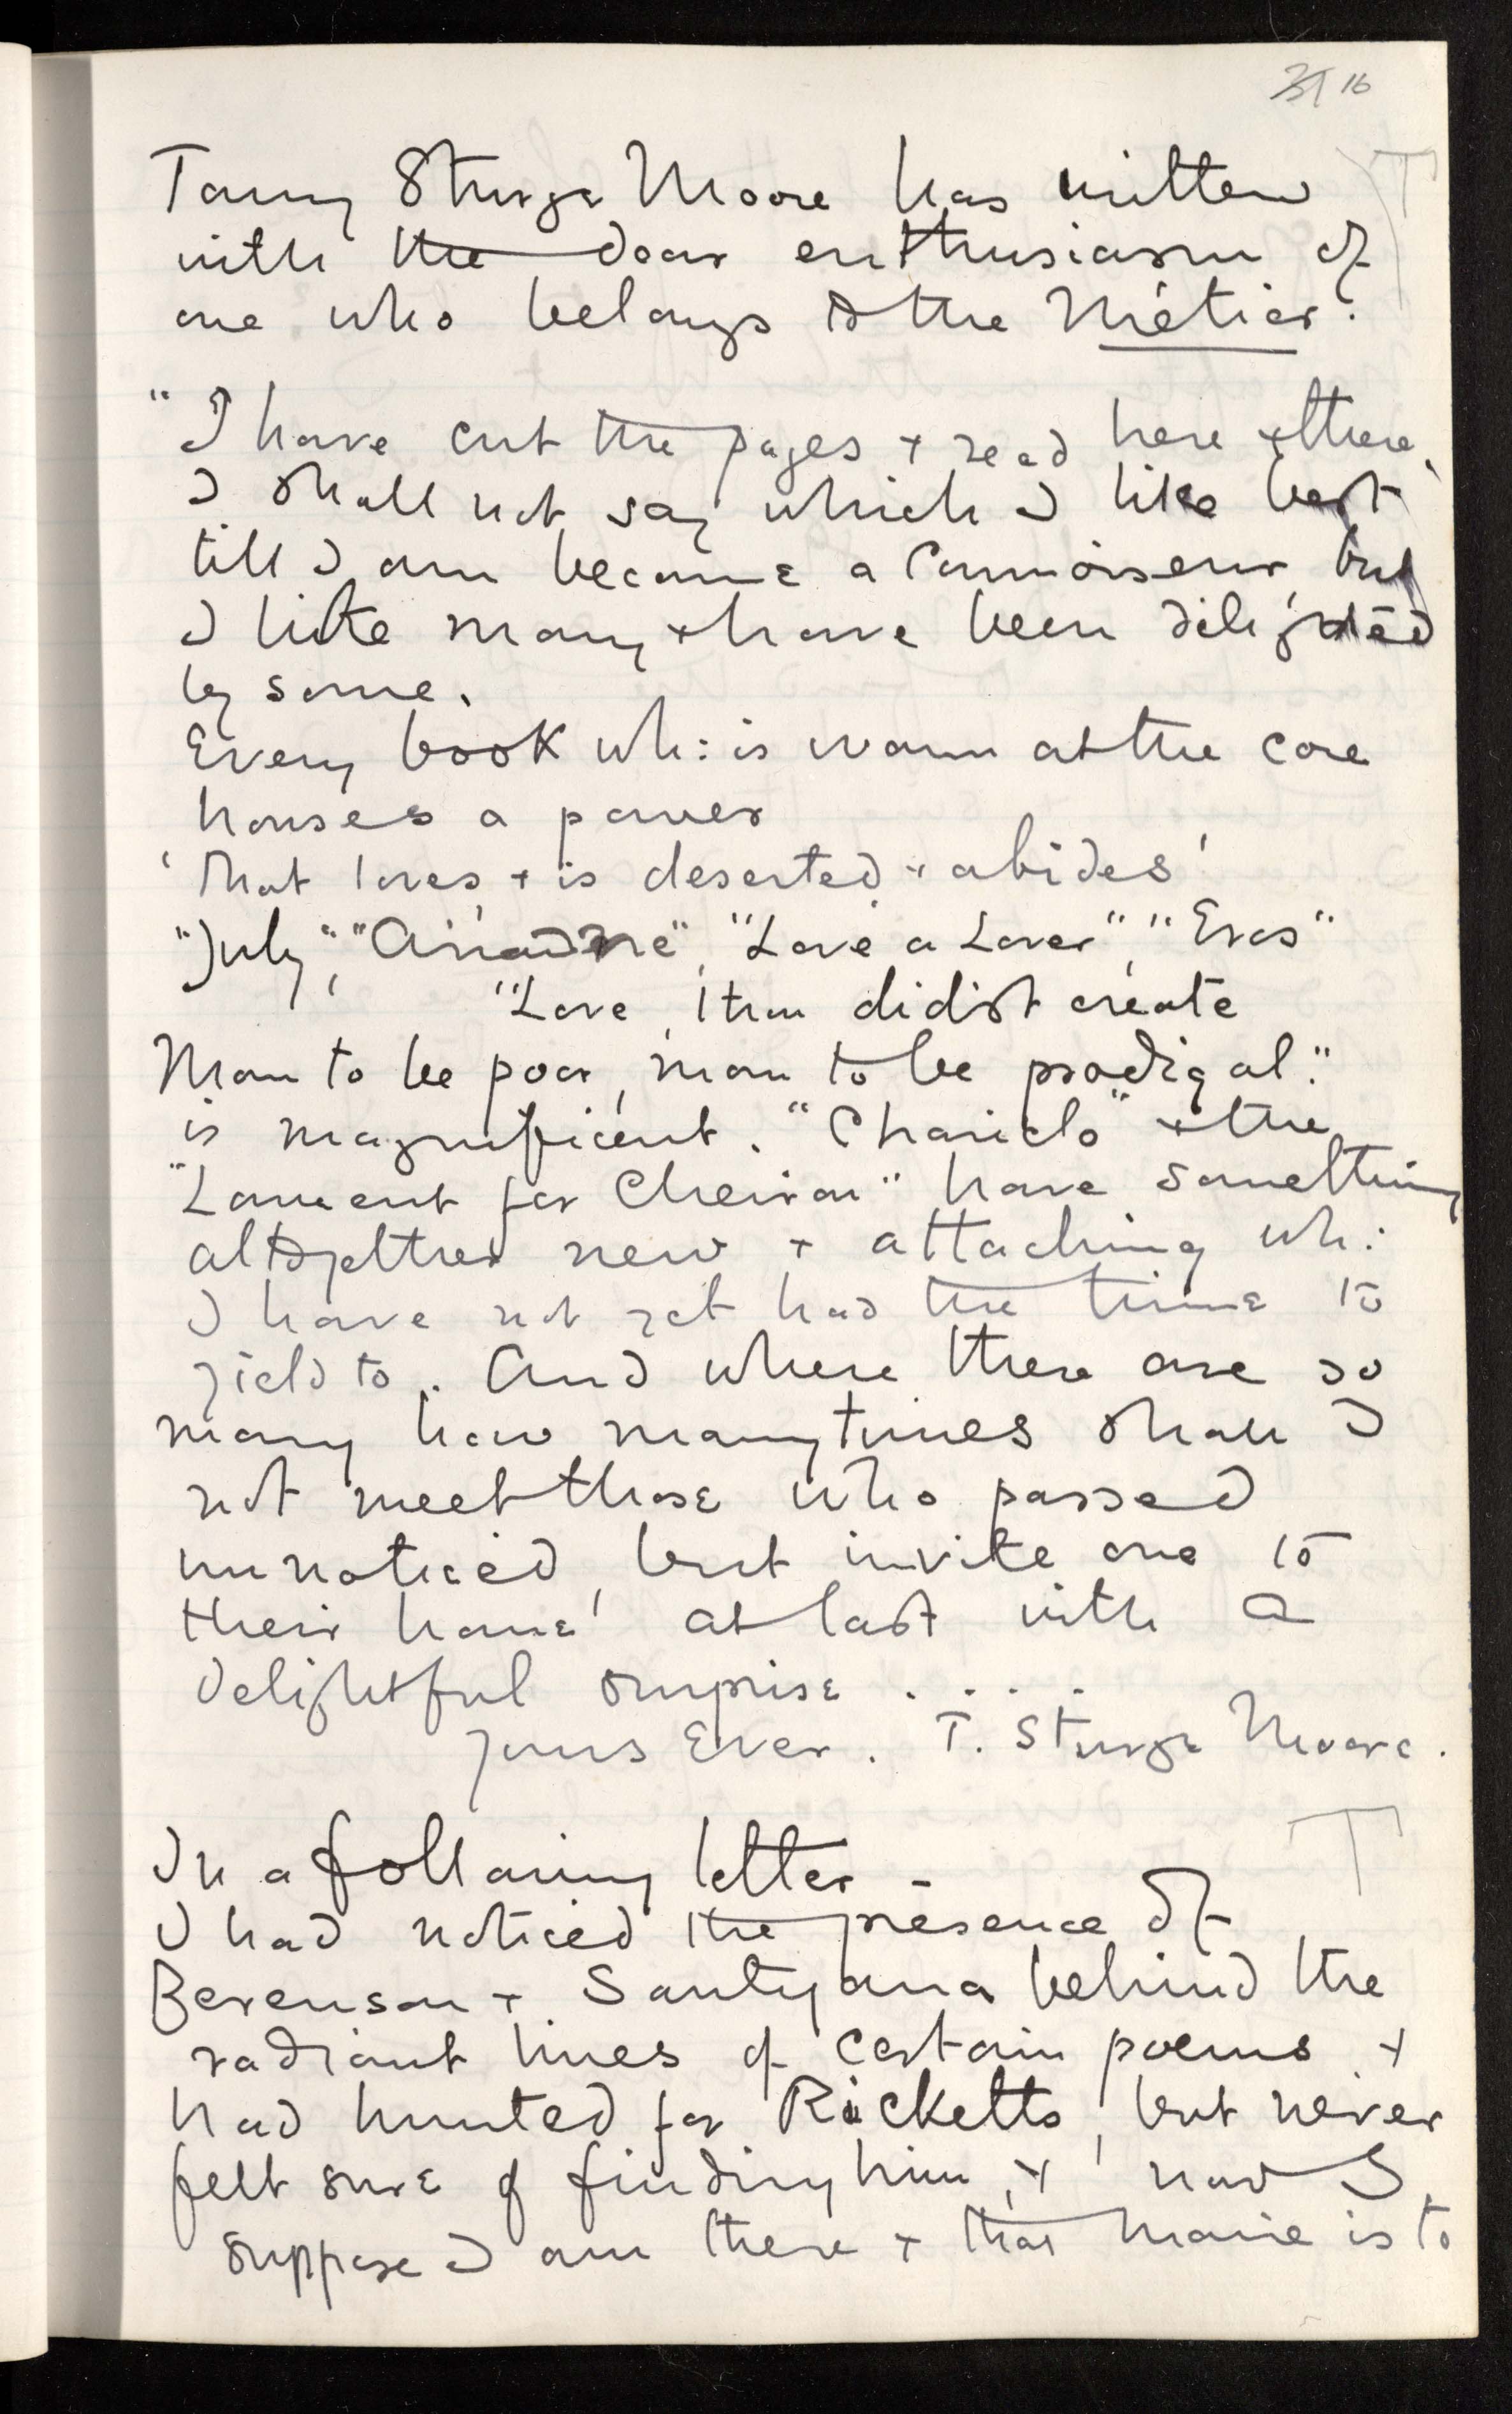 31 16
Tommy Sturge Moore has written
with the dear enthusiasm of
one who belongs to the Métier:
"I have cut the pages + read here + there,
I shall not say which I like best
till I am become a Connoiseur, but
I like many + have been delighted
by some.
Every book wh: is warm at the core
houses a power
'That loves, + is deserted + abides'
"July", "Ariadne", "Love a Lover", "Eros"
"Love, thou didst create
Man to be poor, man to be prodigal."
is magnificent. "Chariclo" + the
"Lament for Cheiron" have something
altogether new + attaching wh:
I have not yet had the time to
yield to. And where there are so
many how many times shall I
not meet those who passed
unnoticed, but invite one to
their home' at last with a
delightful surprise . . . .
Yours Ever. T. Sturge Moore.
In a following letter -
I had noticed the presence of
Berenson + Santyana behind the
radiant lines of certain poems +
had hunted for Ricketts, but never
felt sure of finding him, + now I
suppose I am there + that Marie is to